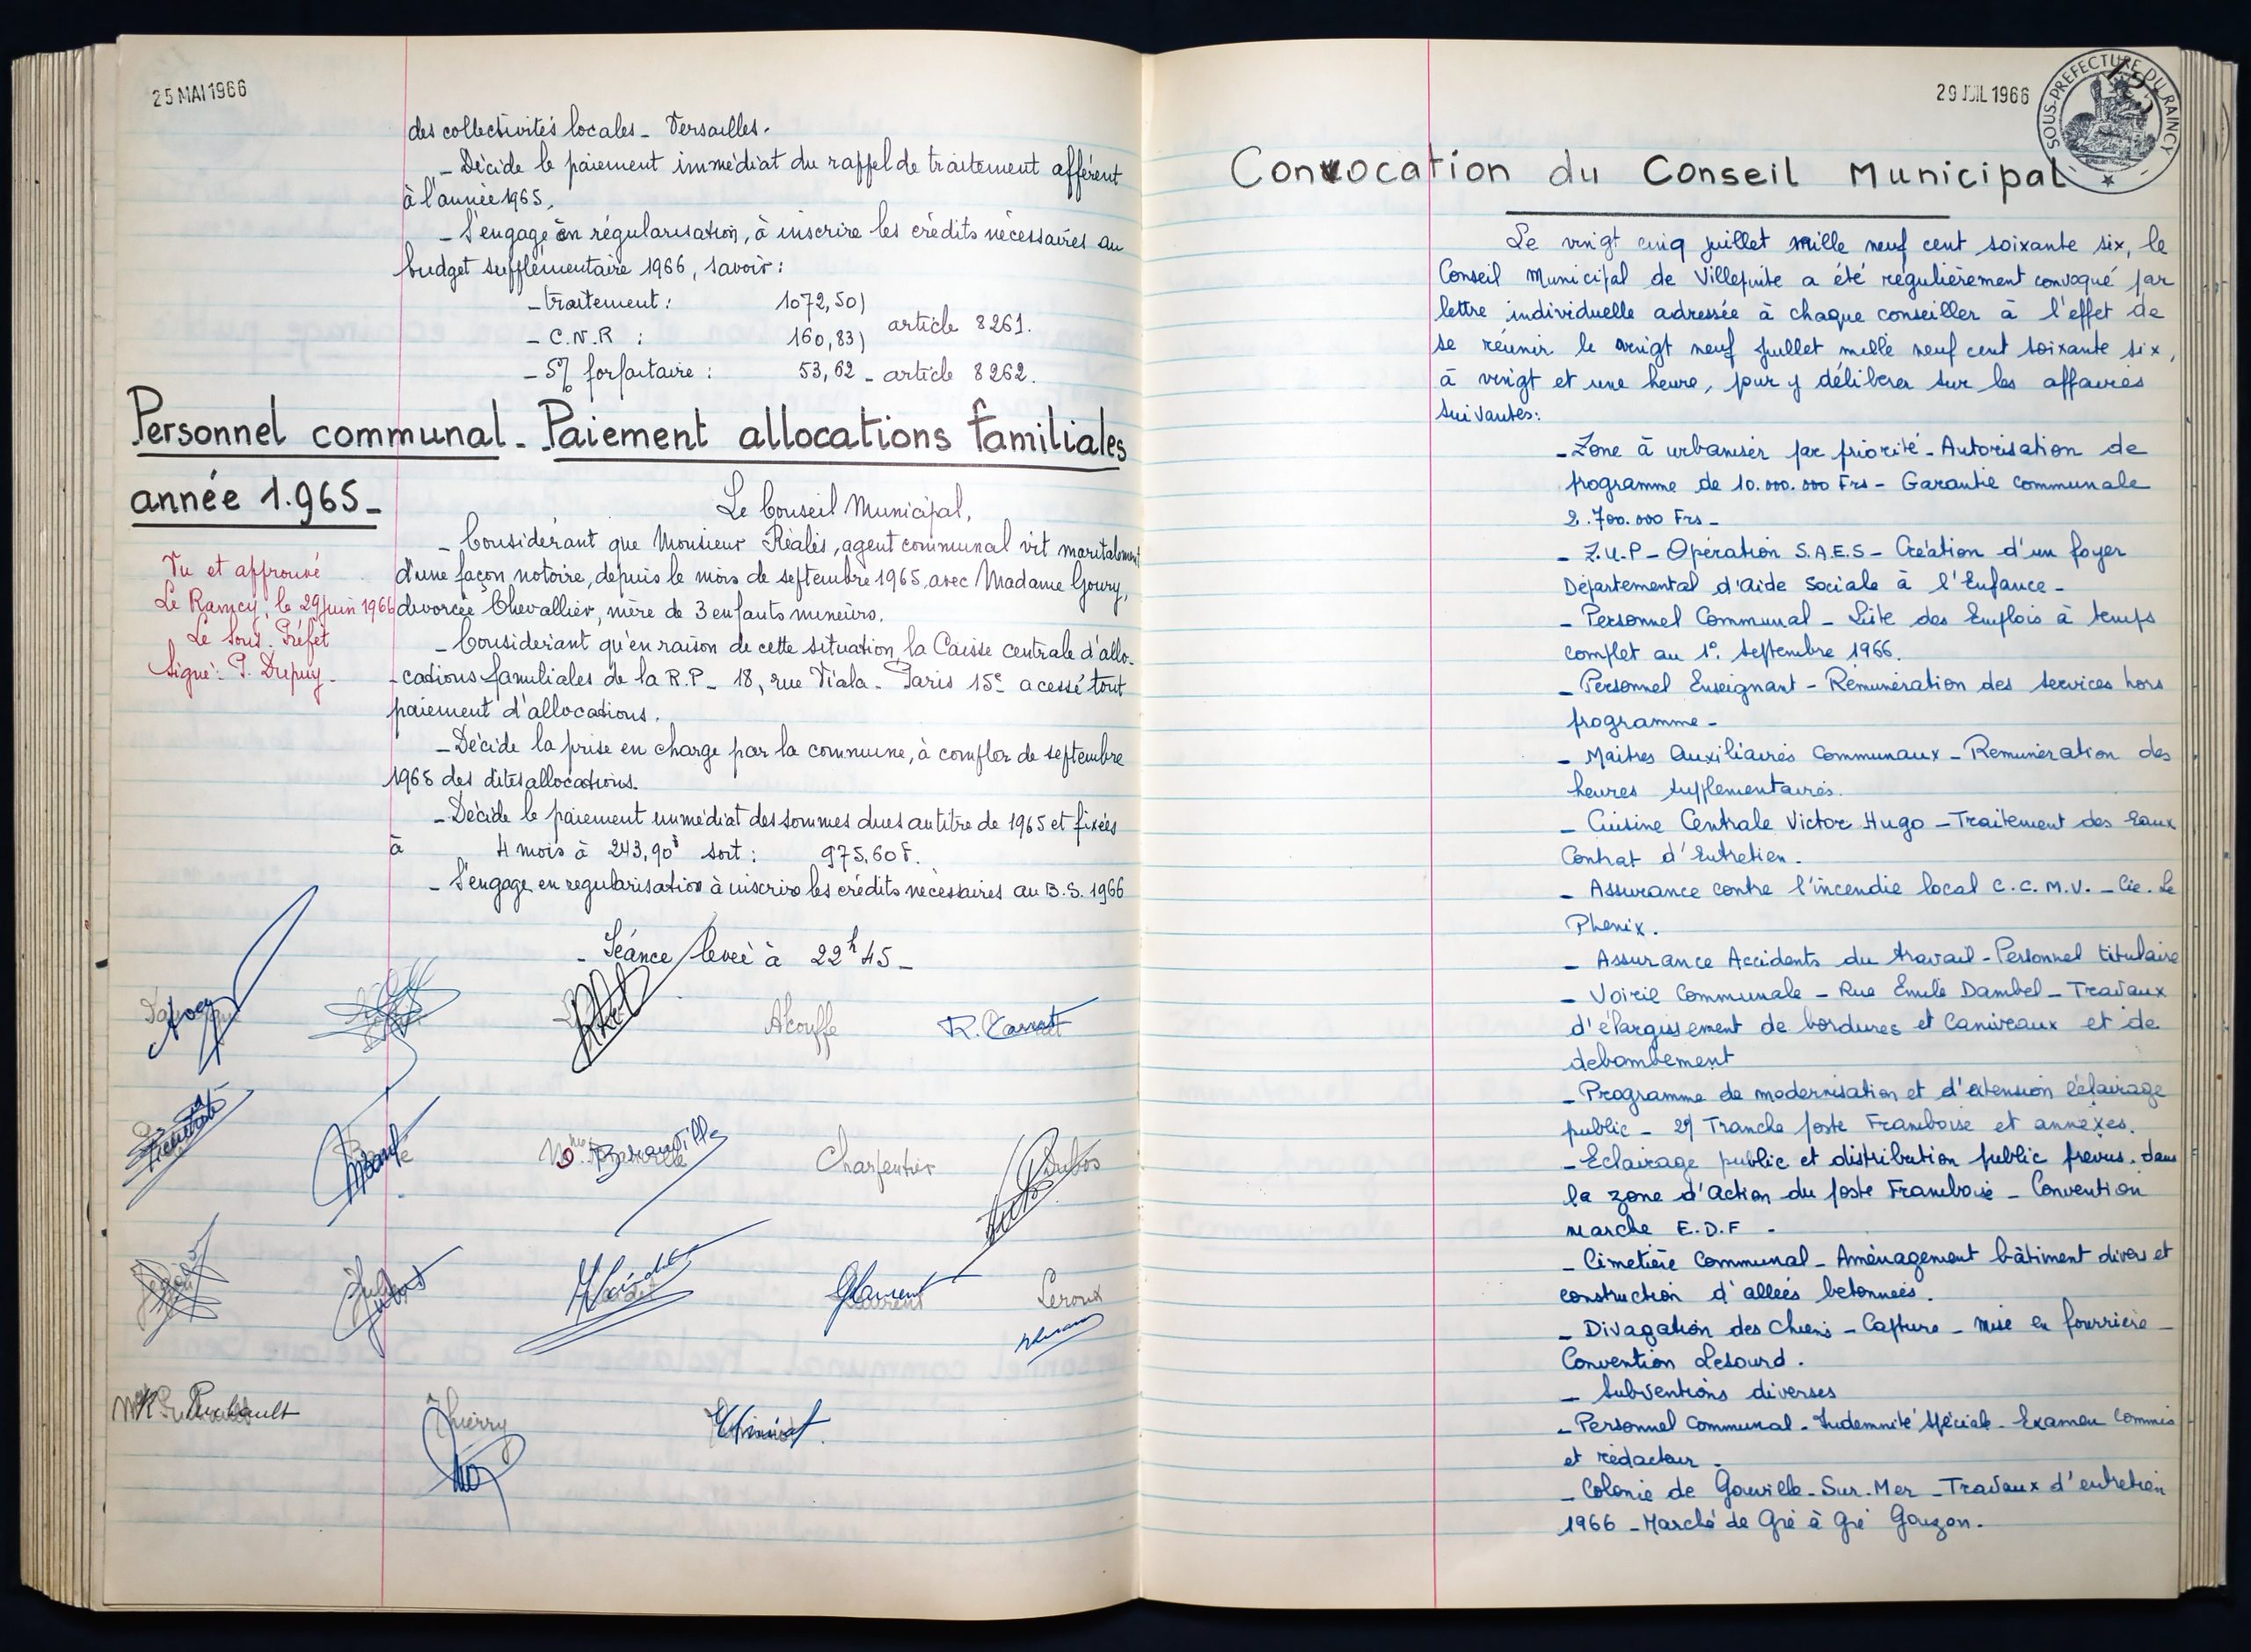 25 MAI 1966
des collectivités locales - Versailles.
- Décide le paiement immédiat du rappel de traitement afférent
à l'année 1965.
- S'engage en régularisation, à inscrire les crédits nécessaires au
budget supplémentaire 1966, savoir :
- traitement : 1072,50)
- C.N.R : 160,83) article 8261.
- 5% forfaitaire : 53,62 - article 8262.
Personnel communal - Paiement allocations familiales
année 1.965 -
Le Conseil Municipal,
- Considérant que Monsieur Réalis, agent communal vit maritalement
d'une façon notoire, depuis le mois de septembre 1965, avec Madame Goury,
divorcée Chevallier, mère de 3 enfants mineurs.
- Considérant qu'en raison de cette situation, la Caisse centrale d'allo-
-cations familiales de la R.P - 18, rue Viala - Paris 15e a cessé tout
paiement d'allocations.
- Décide la prise en charge par la commune, à compter de septembre
1965 des dites allocations.
- Décide le paiement immédiat des sommes dues au titre de 1965 et fixées
à 4 mois à 243,90F soit : 975,60F.
- S'engage en régularisation à inscrire les crédits nécessaires au B.S. 1966
Vu et approuvé
Le Raincy, le 29 Juin 1966
Le Sous-Préfet
Signé : P. Dupuy -
- Séance levée à 22h45 -
Alcouffe R. Carrat
Charpentier Dubos
Laurent Leroux
Thierry
29 JUIL 1966
SOUS-PREFECTURE DU RAINCY
Convocation du Conseil Municipal
Le vingt cinq juillet mille neuf cent soixante six, le
Conseil Municipal de Villepinte a été régulièrement convoqué par
lettre individuelle adressée à chaque conseiller à l'effet de
se réunir le vingt neuf Juillet mille neuf cent soixante six,
à vingt et une heure, pour y délibérer sur les affaires
suivantes :
- Zone à urbaniser par priorité - Autorisation de
programme de 10.000.000 Frs - Garantie communale
2.700.000 Frs -
- Z.U.P - Opération S.A.E.S - Création d'un foyer
Départemental d'Aide Sociale à l'Enfance -
- Personnel Communal - Liste des Emplois à temps
complet au 1er Septembre 1966.
- Personnel Enseignant - Rémunération des services hors
programme -
- Maitres Auxiliaires Communaux - Rémunération des
heures supplémentaires.
- Cuisine Centrale Victor Hugo - Traitement des Eaux
Contrat d'Entretien -
- Assurance contre l'incendie local C.C.M.V. - Cie. Le
Phenix.
- Assurance Accidents du travail - Personnel titulaire
- Voirie Communale - Rue Emile Dambel - Travaux
d'élargissement de bordures et Caniveaux et de
debombement
- Programme de modernisation et d'extension éclairage
public - 2e Tranche poste Framboise et annexes.
- Eclairage public et distribution public prevus dans
la zone d'action du poste Framboise - Convention
marche E.D.F -
- Cimetière Communal - Aménagement bâtiment divers et
construction d'allées betonnées.
- Divagation des Chiens - Capture - mise en fourrière -
Convention Lesourd.
- Subventions diverses
- Personnel Communal - Indemnité Spéciale - Examen Commis
et rédacteur -
- Colonie de Gouville-Sur-Mer - Travaux d'entretien
1966 - Marché de Gré à Gré Gouzon.